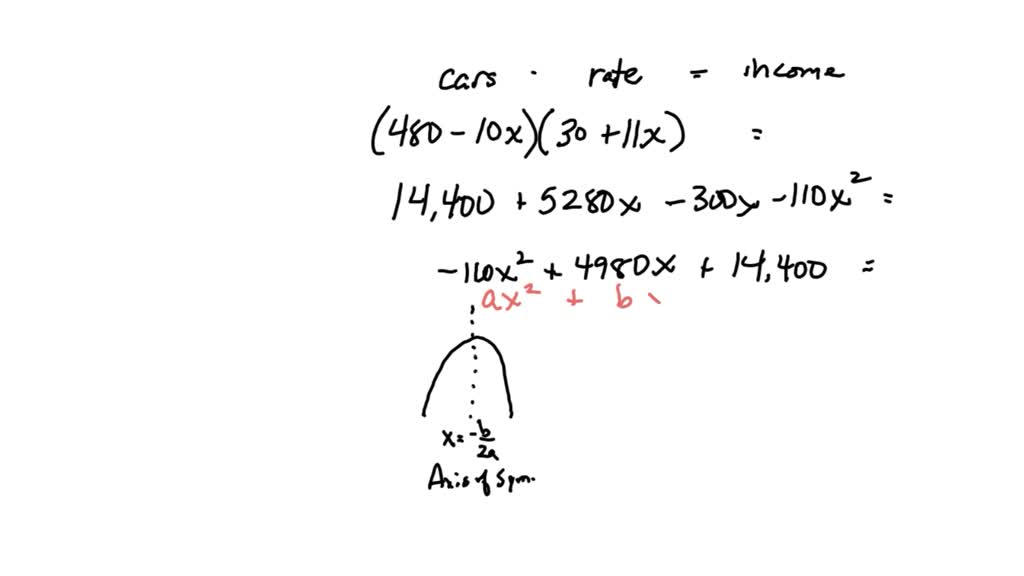 cars · rate = income
(480 - 10x)(30 + 11x) =
14,400 + 5280x - 300x - 110x² =
-110x² + 4980x + 14,400 =
ax² + b
x = -b/2a
Axis of Sym.